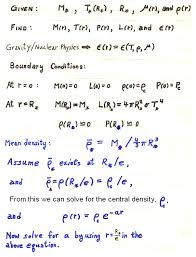 GIVEN: M⊙, T⊙(R⊙), R⊙, μ(r), and ρ(r)
FIND: M(r), T(r), P(r), L(r), and ε(r)
Gravity/Nuclear Physics ⟹ ε(r) = ε(T, ρ, μ)
Boundary Conditions:
At r=0: M(0)=0 L(0)=0 ρ(0)=ρc P(0)=Pc
At r=R⊙: M(R⊙)=M⊙ L(R⊙)=4πR⊙²σT⊙⁴
ρ(R⊙)=0 P(R⊙)=0
Mean density: ρ̄⊙ = M⊙ / 4/3 πR⊙³
Assume ρ̄⊙ exists at R⊙/e,
and ρ̄⊙ = ρ(R⊙/e) = ρc/e,
From this we can solve for the central density, ρc
and ρ(r) = ρc e^-ar
Now solve for a by using r=R⊙/e in
the above equation.